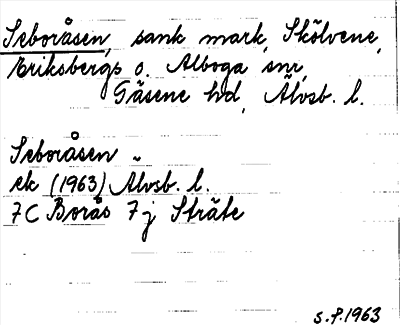 Seboråsen, sank mark, Skölvene,
Eriksbergs o. Alboga snr,
Gäsene hd, Älvsb. l.
Seboråsen
ek (1963) Älvsb. l.
7C Borås 7j Sträte
s.f.1963